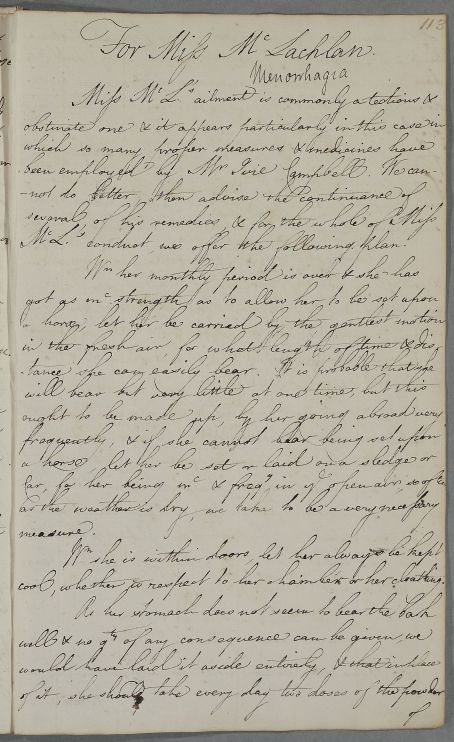 113
For Miss Mc Lachlan.
Menorrhagia
Miss Mc L.'s ailment is commonly a tedious &
obstinate one & it appears particularly in this case in
which so many proper measures & medicines have
been employed by Mr Campbell. We can-
-not do better then advise the continuance of
several of his remedies, & for the whole of Miss
Mc L.'s conduct, we offer the following plan.
Wn her monthly period is over & she has
got as mc strength as to allow her to be set upon
a horse, let her be carried by the gentlest motion
in the fresh air for what length of time & dis-
tance she can easily bear. It is probable that she
will bear but very little at one time, but this
ought to be made up, by her going abroad very
frequently, & if she cannot bear being set upon
a horse, let her be set or laid on a sledge or
Car, for her being mc & freqy in ye open air, so
as the weather is dry, we take to be a very necessary
measure.
Wn she is within doors, let her always be kept
cool, whether in respect to her chamber or her cloathing.
As her stomach does not seem to bear the bark
well & no qty of any consequence can be given, we
would have laid it aside entirely, & that in place
of it, she should take every day two doses of the powder
of